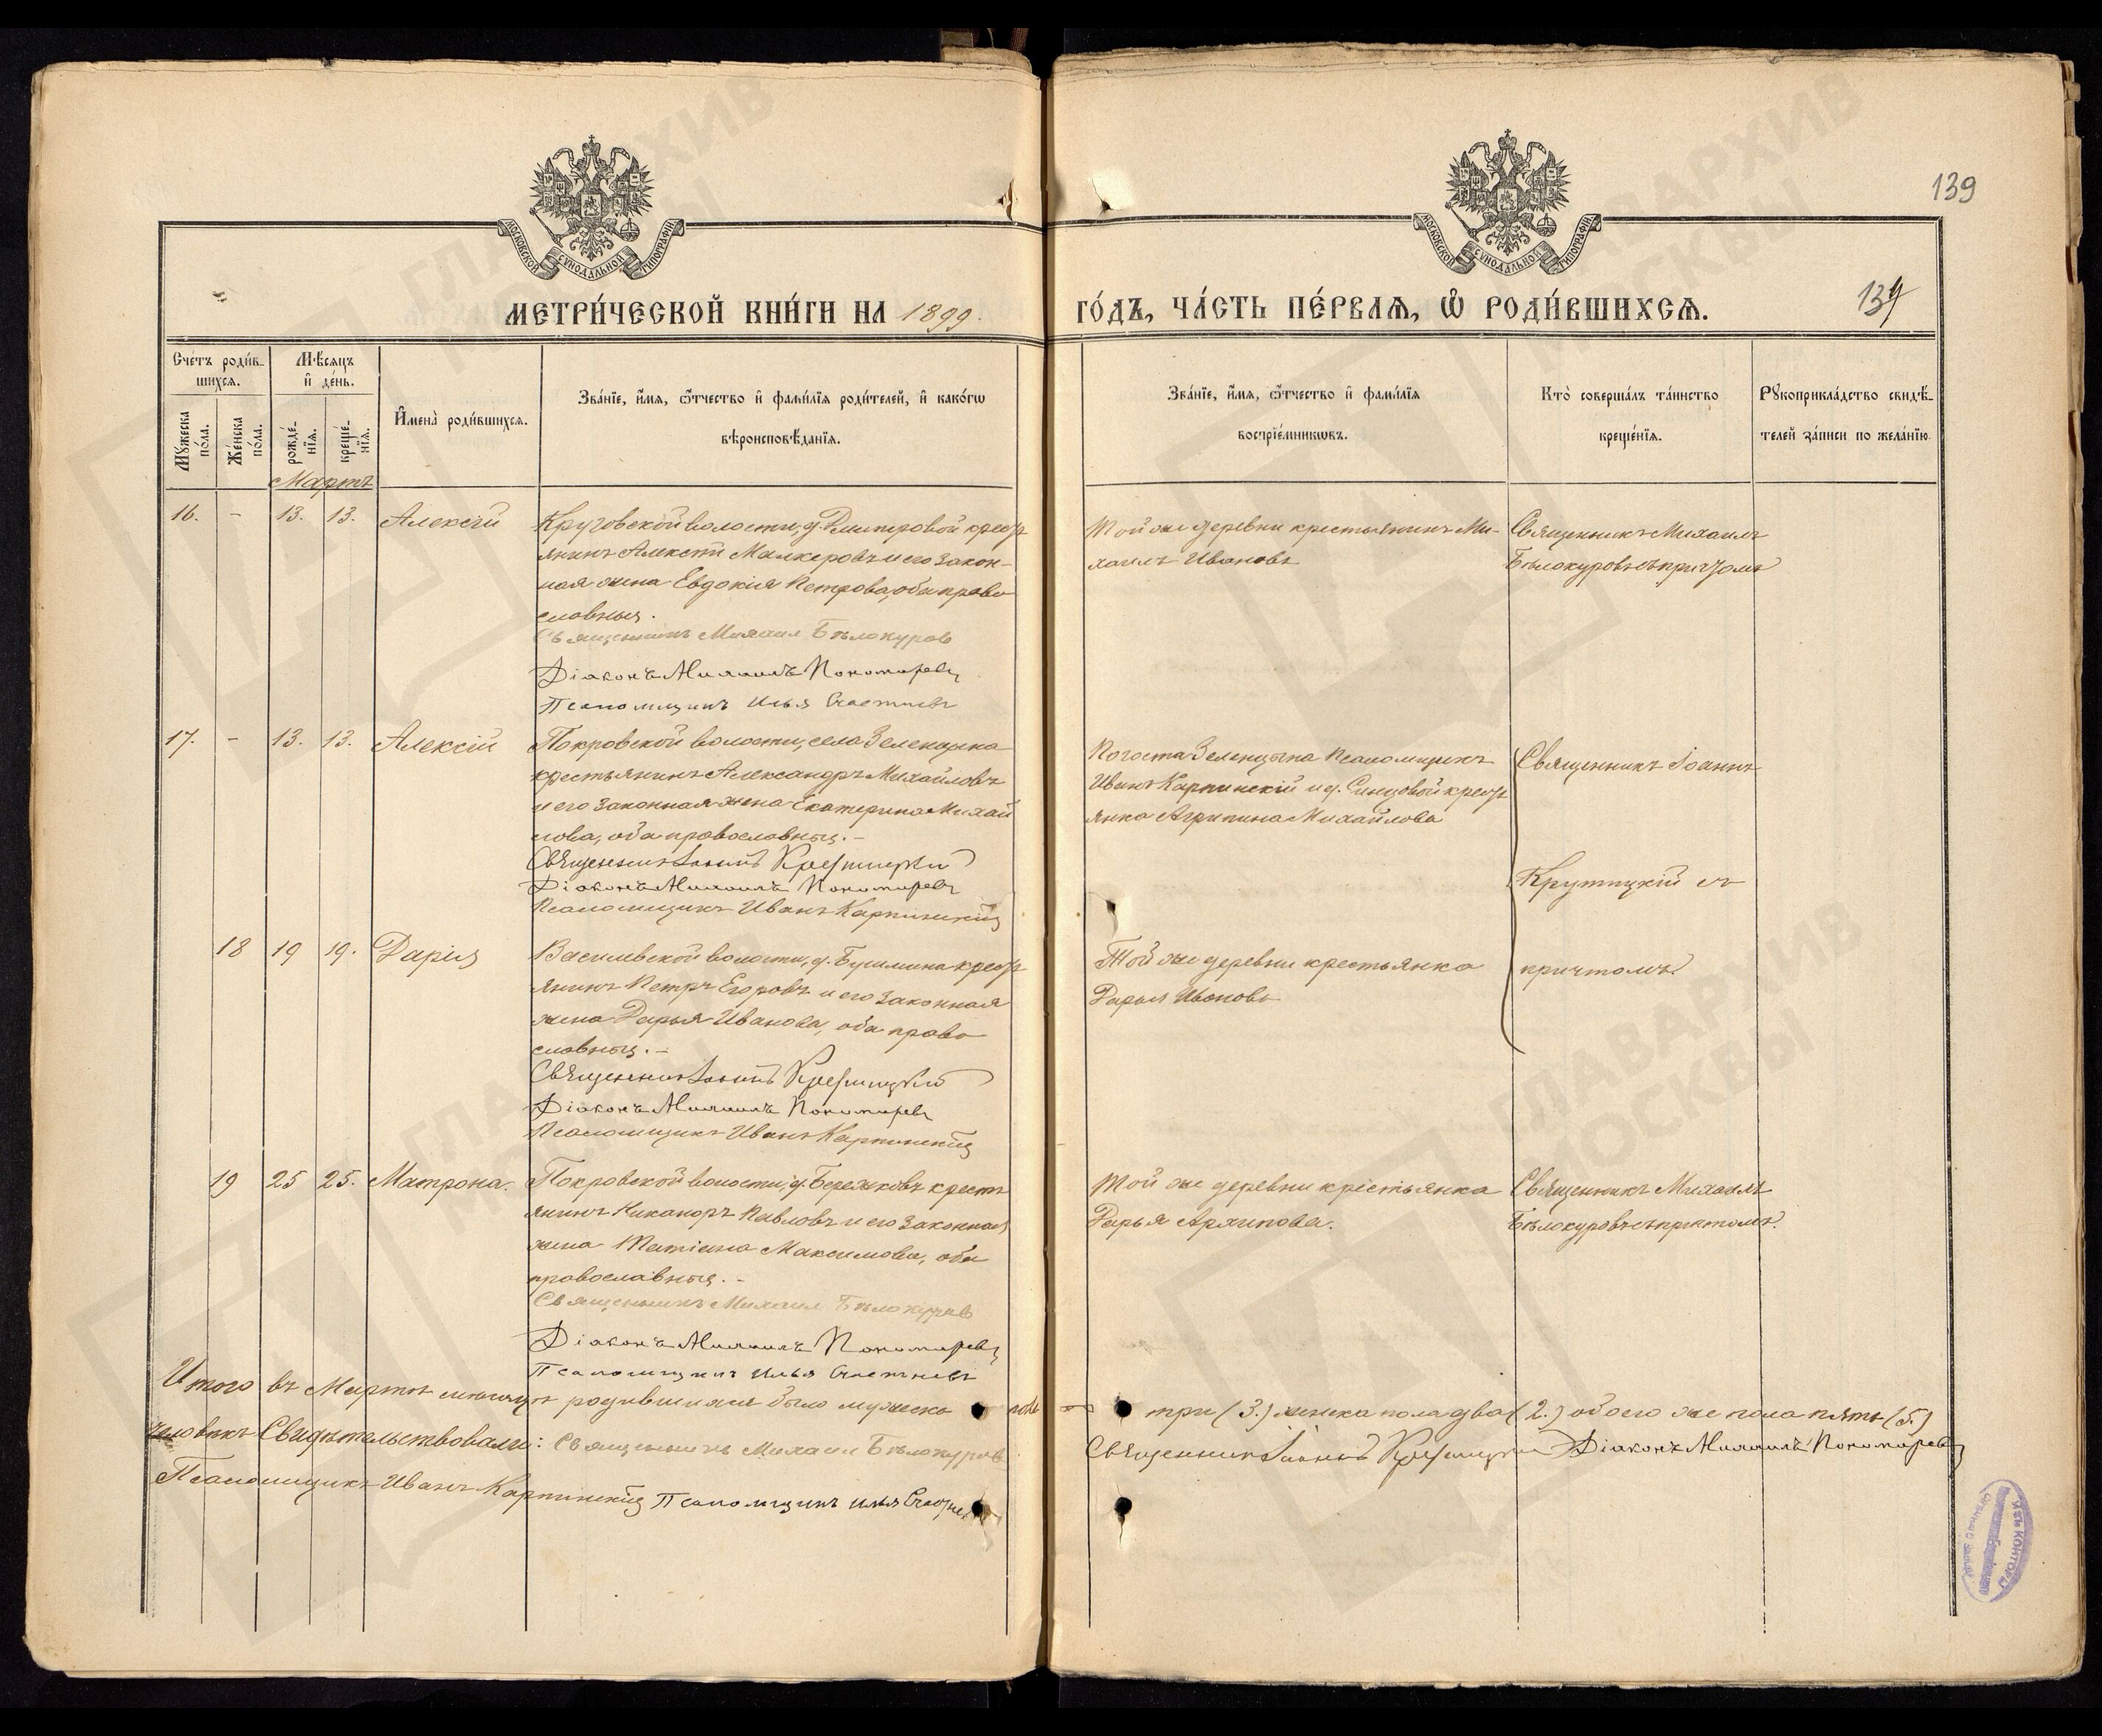 139
МОСКОВСКОЙ СѴНОДАЛЬНОЙ ТИПОГРАФІИ
МОСКОВСКОЙ СѴНОДАЛЬНОЙ ТИПОГРАФІИ
МЕТРИ́ЧЕСКОЙ КНИ́ГИ НА 1899.
ГО́ДЪ, ЧА́СТЬ ПЕ́РВАѦ, Ѡ РОДИ́ВШИХСѦ.
Сче́тъ роди́в-
шихсѧ.
Му́жеска по́ла.
Же́нска по́ла.
Мѣ́сѧцъ
и҆ де́нь.
рожде́-
нїѧ.
креще́-
нїѧ.
Мартъ
И҆мена̀ роди́вшихсѧ.
Зва́нїе, и҆́мѧ, ѻ҆́тчество и҆ фами́лїѧ роди́телей, и҆ како́гѡ
вѣроисповѣ́данїѧ.
Зва́нїе, и҆́мѧ, ѻ҆́тчество и҆ фами́лїѧ
воспрїе́мникѡвъ.
Кто̀ соверша́лъ та́инство
креще́нїѧ.
Рꙋкоприкла́дство свидѣ́-
телей за́писи по жела́нїю.
16. - 13. 13. Алексій
Круговской волости, д. Дмитровой крест
янинъ Алексѣй Малкеровъ и его закон-
ная жена Евдокія Петрова, оба право
славныя.
Священникъ Михаил Бѣлокуров
Діаконъ Михаилъ Пономаревъ
Псаломщикъ Илья Счастневъ
Той же деревни крестьянинъ Ми-
хаилъ Ивановъ
Священникъ Михаилъ
Бѣлокуровъ съ причтомъ
17. - 13. 13. Алексій
Покровской волости, села Зеленцына
крестьянинъ Александръ Михайловъ
и его законная жена Екатерина Михай
лова, оба православныя.-
Священникъ Іоаннъ Крутицкій
Діаконъ Михаилъ Пономаревъ
Псаломщикъ Иванъ Карпинскій
Погоста Зеленцына Псаломщикъ
Иванъ Карпинскій и д. Синцовой крест
янка Агрипина Михайлова
Священникъ Іоаннъ
Крутицкій съ
причтомъ
18 19 19. Дарія
Василевской волости, д. Бушмина крест
янинъ Петръ Егоровъ и его законная
жена Дарья Иванова, оба право
славныя.-
Священникъ Іоаннъ Крутицкій
Діаконъ Михаилъ Пономаревъ
Псаломщикъ Иванъ Карпинскій
Той же деревни крестьянка
Дарья Иванова
19 25 25. Матрона.
Покровской волости, д. Бережковъ кресть
янинъ Никаноръ Павловъ и его законная
жена Татіана Максимова, оба
православныя.-
Священникъ Михаил Бѣлокуров
Діаконъ Михаилъ Пономаревъ
Псаломщикъ Илья Счастневъ
Той же деревни крестьянка
Дарья Архипова.
Священникъ Михаилъ
Бѣлокуровъ съ причтомъ.
Итого въ Мартѣ мѣсяцѣ родившихся было мужеска пола три (3.) женска пола два (2.) обоего же пола пять (5.)
человѣкъ Свидѣтельствовали: Священникъ Михаил Бѣлокуров Священникъ Іоаннъ Крутицкій Діаконъ Михаилъ Пономаревъ
Псаломщикъ Иванъ Карпинскій Псаломщикъ Илья Счастневъ
ГЛАВАРХИВ
МОСКВЫ